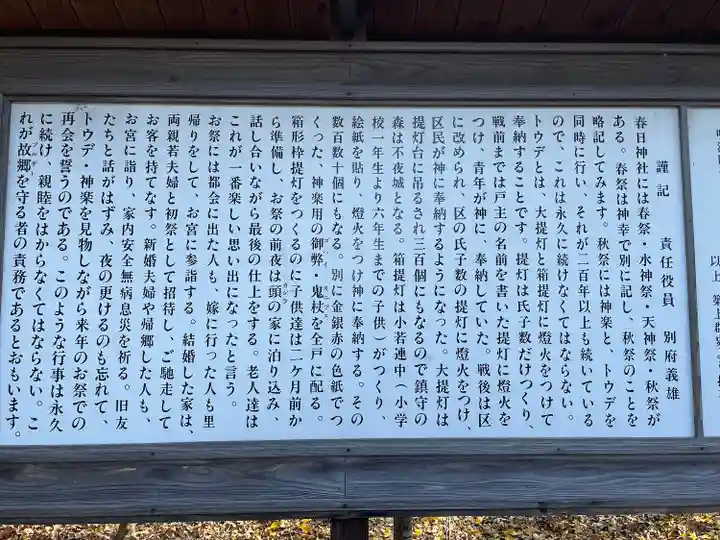 謹記　責任役員　別府義雄
春日神社には春祭・水神祭・天神祭・秋祭が
ある。春祭は神幸で別に記し、秋祭のことを
略記してみます。秋祭には神楽と、トウデを
同時に行い、それが二百年以上も続いている
ので、これは永久に続けなくてはならない。
トウデとは、大提灯と箱提灯に燈火をつけて
奉納することです。提灯は氏子数だけつくり、
戦前までは戸主の名前を書いた提灯に燈火を
つけ、青年が神に、奉納していた。戦後は区
に改められ、区の氏子数の提灯に燈火をつけ、
区民が神に奉納するようになった。大提灯は
提灯台に吊るされ三百個にもなるので鎮守の
森は不夜城となる。箱提灯は小若連中（小学
校一年生より六年生までの子供）がつくり、
絵紙を貼り、燈火をつけ神に奉納する。その
数百数十個にもなる。別に金銀赤の色紙でつ
くった、神楽用の御弊・鬼杖を全戸に配る。
箱形枠提灯をつくるのに子供達は二ケ月前か
ら準備し、お祭の前夜は頭の家に泊り込み、
話し合いながら最後の仕上をする。老人達は
これが一番楽しい思い出になったと言う。
お祭には都会に出た人も、嫁に行った人も里
帰りをして、お宮に参詣する。結婚した家は、
両親若夫婦と初祭として招待し、ご馳走して
お客を持てなす。新婚夫婦や帰郷した人も、
お宮に詣り、家内安全無病息災を祈る。旧友
たちと話がはずみ、夜の更けるのも忘れて、
トウデ・神楽を見物しながら来年のお祭での
再会を誓うのである。このような行事は永久
に続け、親睦をはからなくてはならない。こ
れが故郷を守る者の責務であるとおもいます。